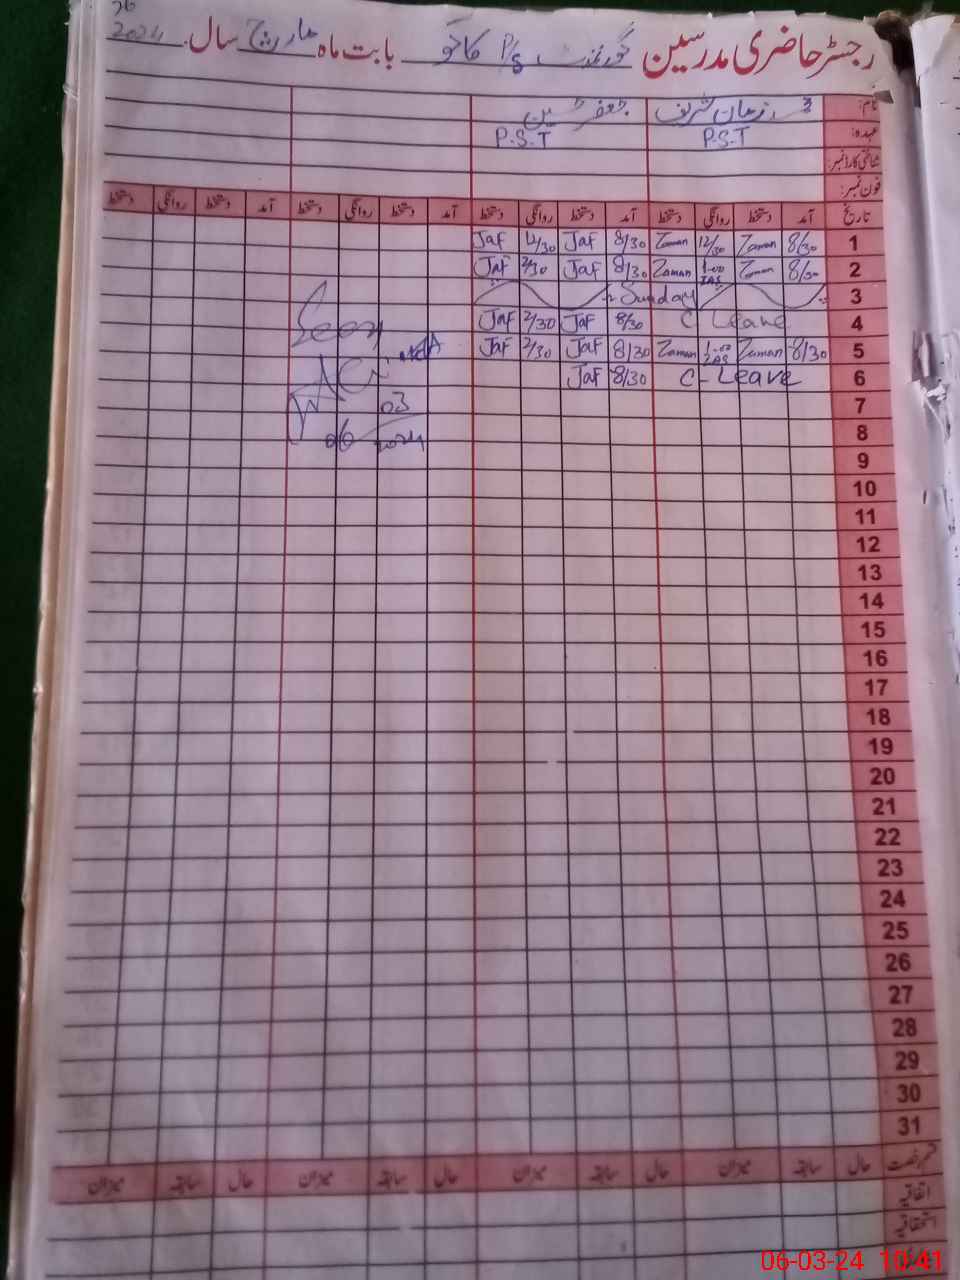 رجسٹر حاضری مدرسین گورنمنٹ P/S بابت ماہ مارچ سال 2024
نام: زمان شریف جعفر حسین
عہدہ: P.S.T P.S.T
شناختی کارڈ نمبر:
فون نمبر:
تاریخ آمد دستخط روانگی دستخط آمد دستخط روانگی دستخط آمد دستخط روانگی دستخط آمد دستخط روانگی دستخط
1 8/30 Zaman 12/30 Zaman 8/30 Jaf 12/30 Jaf
2 8/30 Zaman 1-00 Zaman 8/30 Jaf 2/30 Jaf
3 Sunday
4 C Leave 8/30 Jaf 2/30 Jaf
5 8/30 Zaman 1-00 Zaman 8/30 Jaf 2/30 Jaf
6 C-Leave 8/30 Jaf
Seen
06 03 2024
7
8
9
10
11
12
13
14
15
16
17
18
19
20
21
22
23
24
25
26
27
28
29
30
31
قسم رخصت حال سابقہ میزان حال سابقہ میزان حال سابقہ میزان حال سابقہ میزان
اتفاقیہ
استحقاقیہ
06-03-24 10:41